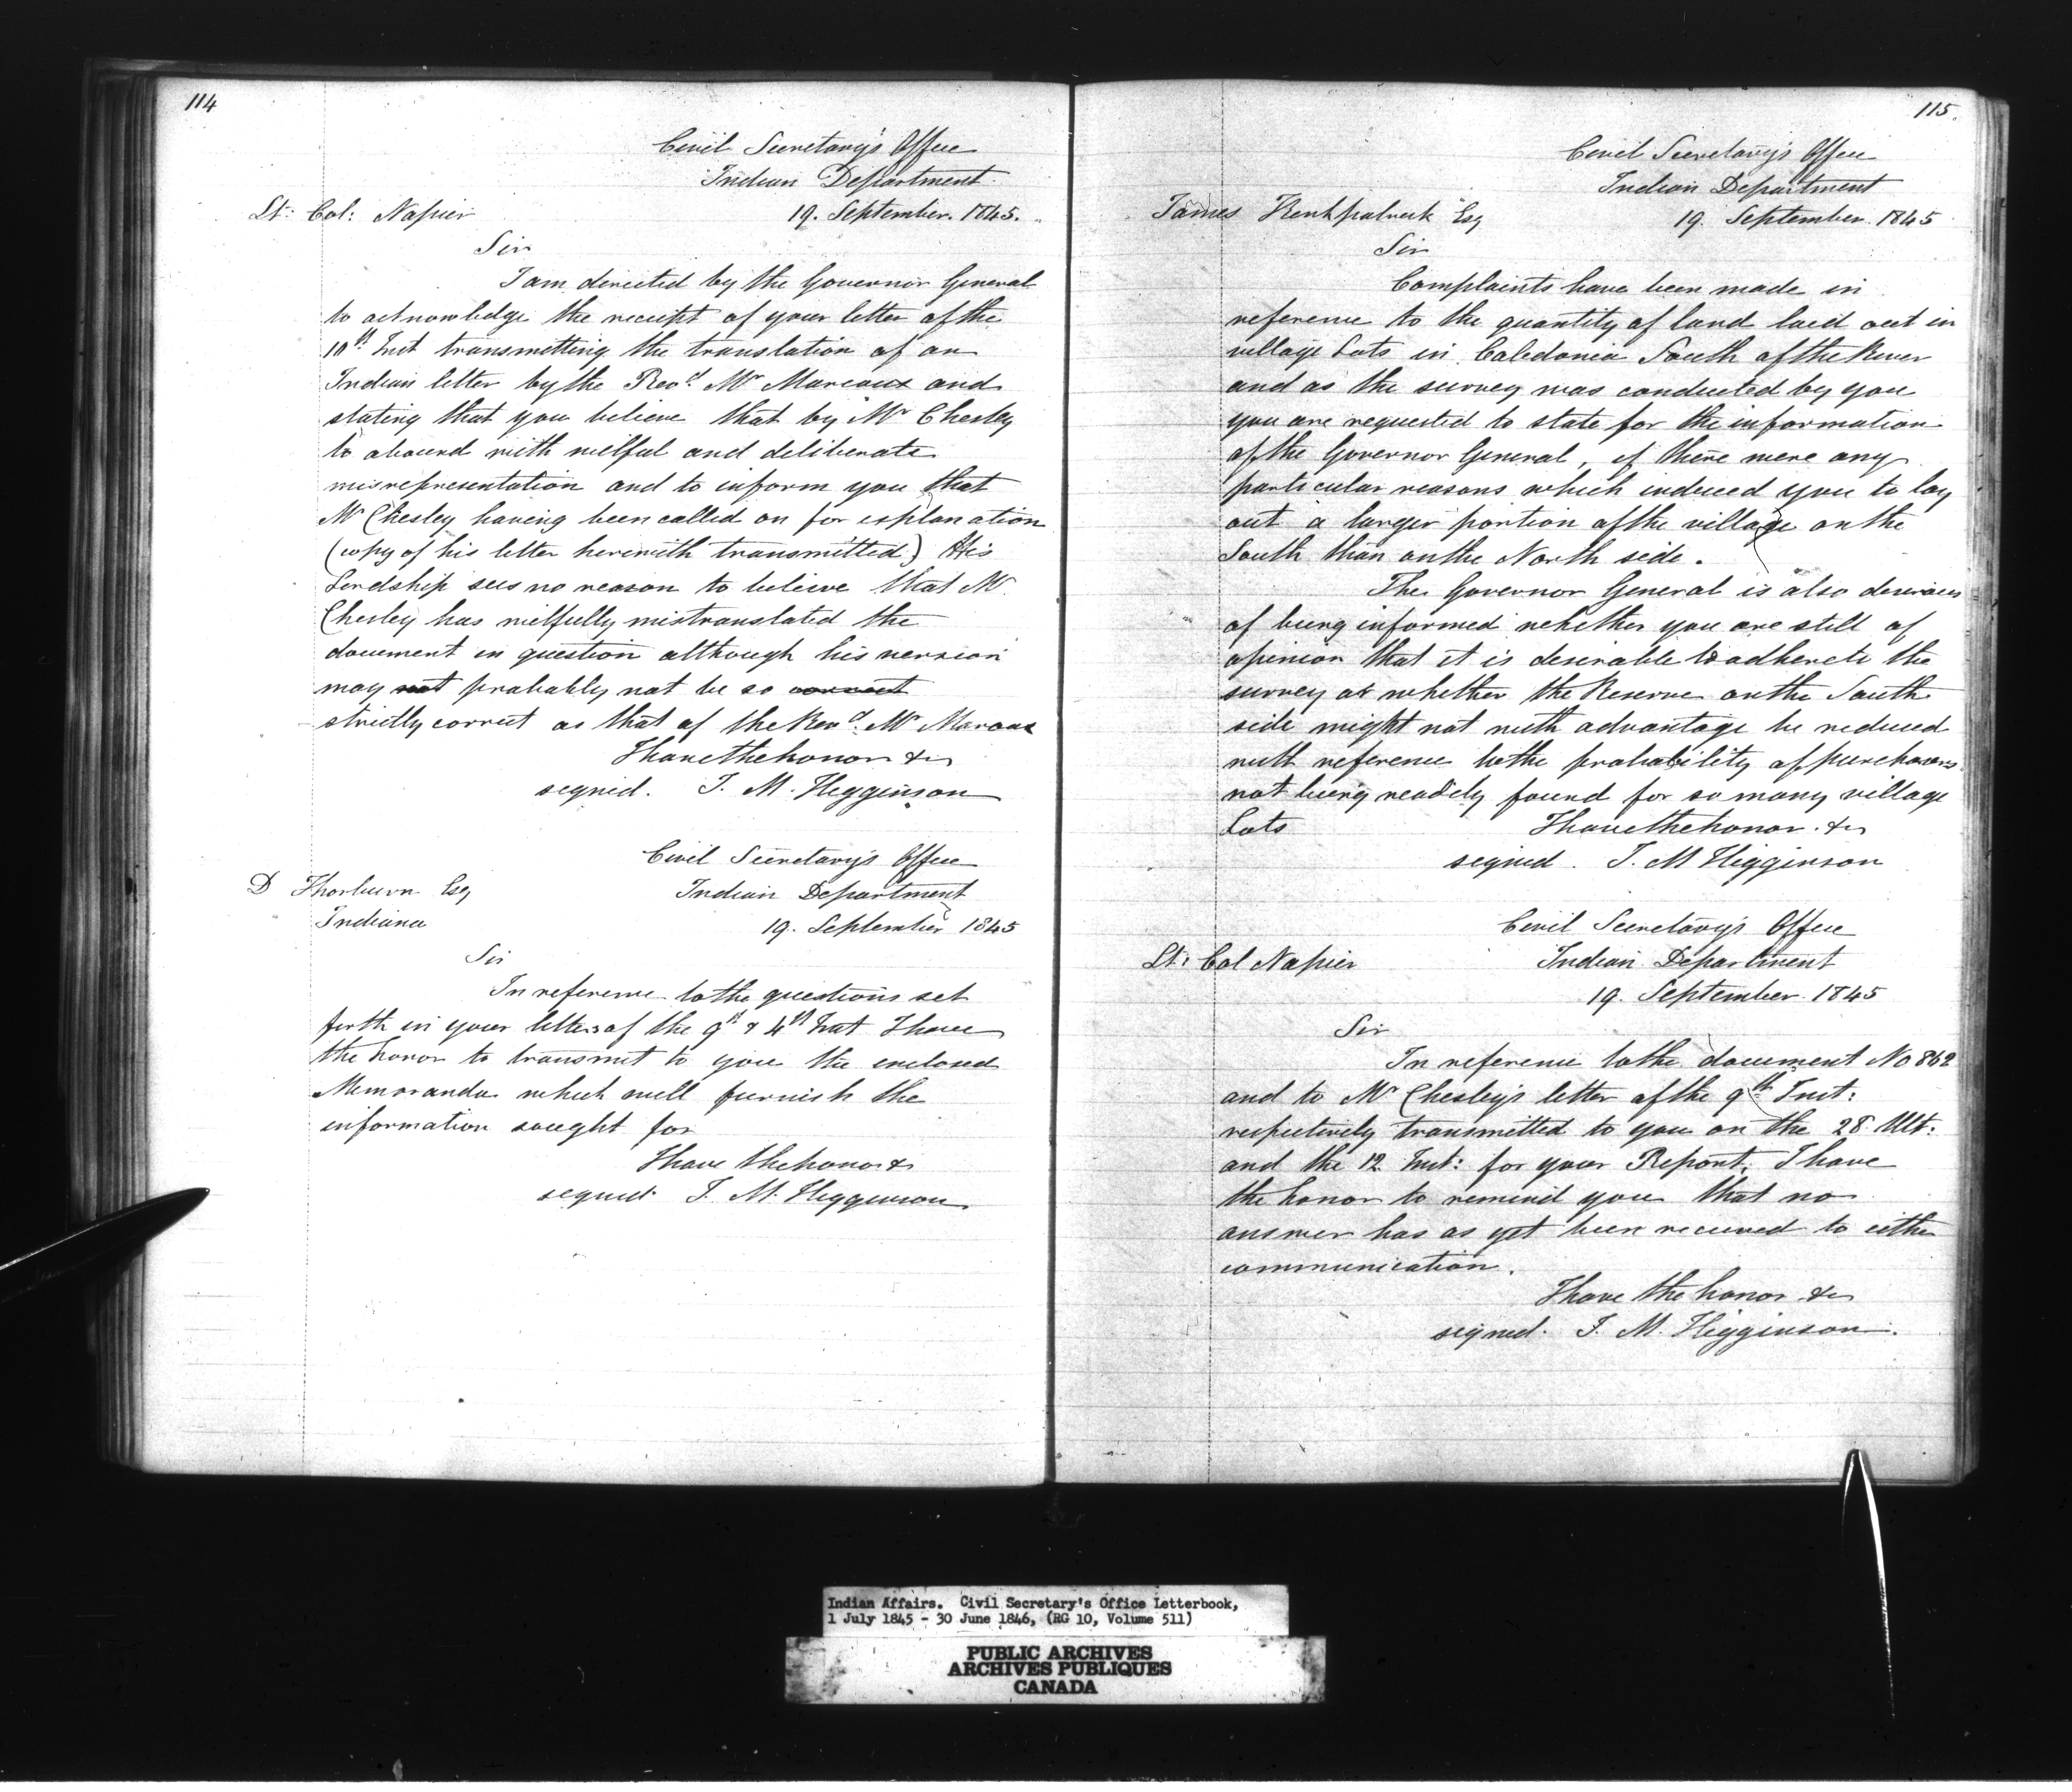 114
Civil Secretary's Office
Indian Department
Lt: Col: Napier 19. September. 1845.
Sir
I am directed by the Governor General
to acknowledge the receipt of your letter of the
10th Inst transmitting the translation of an
Indian letter by the Revd. Mr Marcoux and
stating that you believe that by Mr Chesley
to abound with wilful and deliberate
misrepresentation and to inform you that
Mr Chesley having been called on for explanation
(copy of his letter herewith transmitted) His
Lordship sees no reason to believe that Mr
Chesley has wilfully mistranslated the
document in question although his version
may not probably not be so correct
strictly correct as that of the Revd. Mr Marcoux
I have the honor &c
signed. J. M. Higginson
Civil Secretary's Office
D Thorburn Esq Indian Department
Indiana 19. September 1845
Sir
In reference to the questions set
forth in your letters of the 9th & 4th Inst I have
the honor to transmit to you the enclosed
Memoranda which will furnish the
information sought for
I have the honor &c
signed. J. M. Higginson
115.
Civil Secretary's Office
Indian Department
James Kirkpatrick Esq 19. September. 1845
Sir
Complaints have been made in
reference to the quantity of land laid out in
village Lots in Caledonia South of the River
and as the survey was conducted by you
you are requested to state for the information
of the Governor General, if there were any
particular reasons which induced you to lay
out a larger portion of the village on the
South than on the North side.
The Governor General is also desirous
of being informed whether you are still of
opinion that it is desirable to adhere to the
survey or whether the Reserve on the South
side might not with advantage be reduced
with reference to the probability of purchasers
not being readily found for so many village
Lots I have the honor. &c
signed. J. M Higginson
Civil Secretary's Office
Lt: Col Napier Indian Department
19. September. 1845
Sir
In reference to the document No 862
and to Mr Chesley's letter of the 9th Inst:
respectively transmitted to you on the 28 Ult:
and the 12 Inst: for your Report. I have
the honor to remind you that no
answer has as yet been received to either
communication.
I have the honor &c
signed. J. M. Higginson.
Indian Affairs. Civil Secretary's Office Letterbook,
1 July 1845 - 30 June 1846, (RG 10, Volume 511)
PUBLIC ARCHIVES
ARCHIVES PUBLIQUES
CANADA